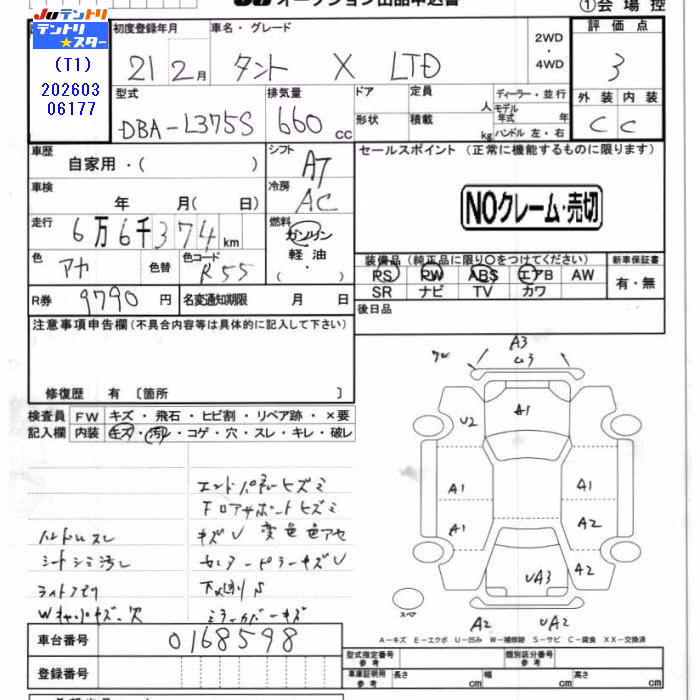 JU オークション出品申込書 ①会場控
JUテントリ
テントリ★スター
(T1)
202603
06177
初度登録年月 車名・グレード 2WD・4WD 評価点
21 2月 タント X LTD 3
型式 排気量 ドア 定員 人 ディーラー・並行
DBA-L375S 660cc 形状 積載 kg モデル年式 年 ハンドル 左・右
外装 内装
C C
車歴 自家用・( ) シフト AT
セールスポイント (正常に機能するものに限ります)
NOクレーム・売切
車検 年 月( 日) 冷房 AC
走行 6万6千374km 燃料 ガソリン 軽油 ( ・ )
色 アカ 色替 色コード R55
装備品(純正品に限り○をつけてください) 新車保証書
PS PW ABS エアB AW 有・無
SR ナビ TV カワ
R券 9790円 名変通知期限 月 日
後日品
注意事項申告欄(不具合内容等は具体的に記入して下さい)
修復歴 有 〔箇所 〕
検査員 FW キズ・飛石・ヒビ割・リペア跡・×要
記入欄 内装 キズ・汚レ・コゲ・穴・スレ・キレ・破レ
エンドパネルヒズミ
ハンドルスレ キズU 変色色アセ
シートシミ汚レ センターピラーキズU
ミラーカバーキズ
A3
U3
A1
U2
A1 A1
A1 A2
UA3 A2
A2 UA2
スペア
A-キズ E-エクボ U-凹み W-補修跡 S-サビ C-腐食 XX-交換済
車台番号 0168598
登録番号
型式指定番号 参考 類別区分番号 参考
車庫証明用 参考 長さ cm 幅 cm 高さ cm